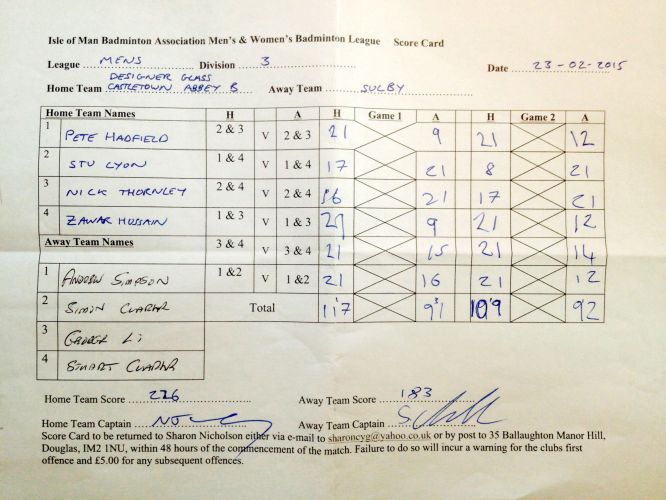 Isle of Man Badminton Association Men's & Women's Badminton League Score Card
League MENS Division 3 Date 23-02-2015
DESIGNER GLASS
Home Team CASTLETOWN ABBEY B Away Team SULBY
Home Team Names H A H Game 1 A H Game 2 A
1 PETE HADFIELD 2 & 3 V 2 & 3 21 9 21 12
2 STU LYON 1 & 4 V 1 & 4 17 21 8 21
3 NICK THORNLEY 2 & 4 V 2 & 4 16 21 17 21
4 ZAWAR HUSSAIN 1 & 3 V 1 & 3 21 9 21 12
Away Team Names 3 & 4 V 3 & 4 21 15 21 14
1 ANDREW SIMPSON 1 &2 V 1 &2 21 16 21 12
2 SIMON CLARKE Total 117 91 109 92
3 GEORGE Li
4 STUART CLARKE
Home Team Score 226 Away Team Score 183
Home Team Captain Away Team Captain
Score Card to be returned to Sharon Nicholson either via e-mail to sharoncyg@yahoo.co.uk or by post to 35 Ballaughton Manor Hill,
Douglas, IM2 1NU, within 48 hours of the commencement of the match. Failure to do so will incur a warning for the clubs first
offence and £5.00 for any subsequent offences.